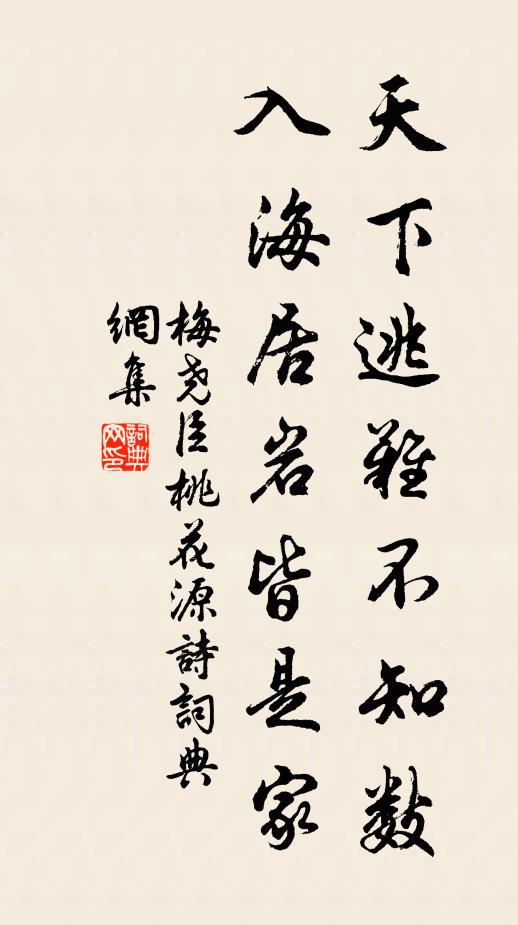 天下逃難不知数
入海居岩皆是家
梅尧臣桃花源詩詞典
網集
詞典
网印